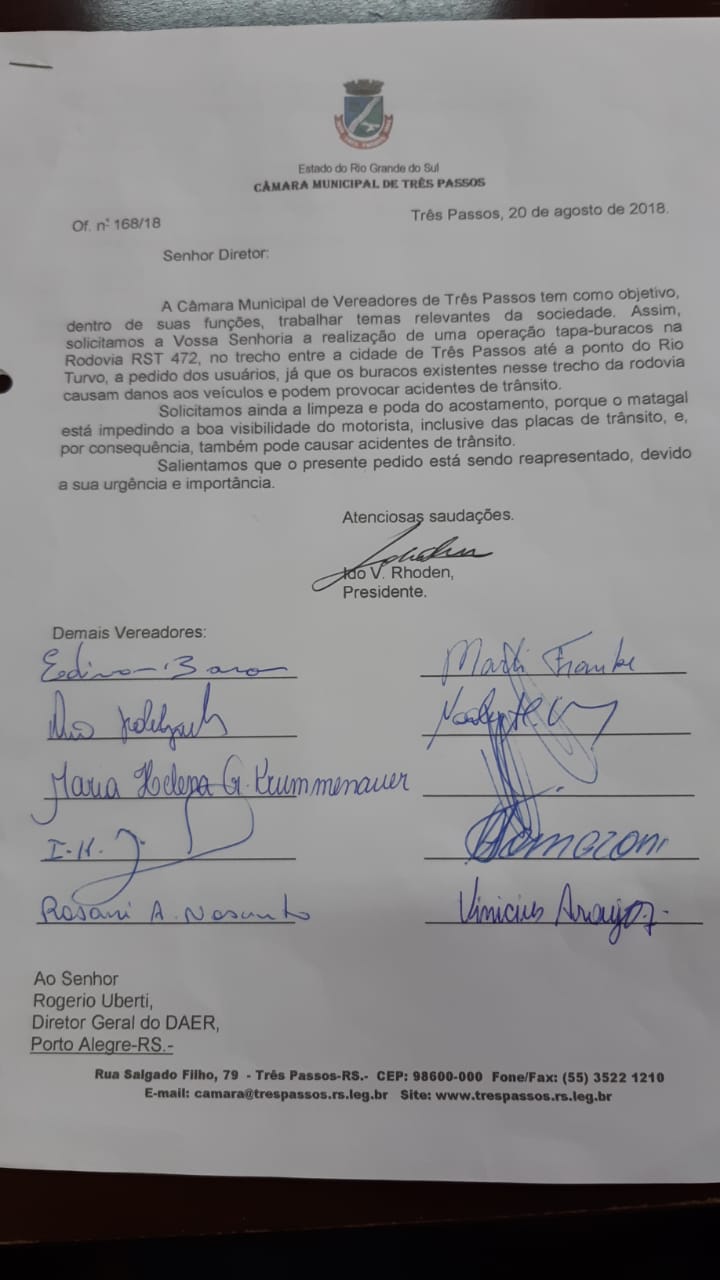 Estado do Rio Grande do Sul
CÂMARA MUNICIPAL DE TRÊS PASSOS
Of. nº 168/18
Três Passos, 20 de agosto de 2018.
Senhor Diretor:
A Câmara Municipal de Vereadores de Três Passos tem como objetivo,
dentro de suas funções, trabalhar temas relevantes da sociedade. Assim,
solicitamos a Vossa Senhoria a realização de uma operação tapa-buracos na
Rodovia RST 472, no trecho entre a cidade de Três Passos até a ponto do Rio
Turvo, a pedido dos usuários, já que os buracos existentes nesse trecho da rodovia
causam danos aos veículos e podem provocar acidentes de trânsito.
Solicitamos ainda a limpeza e poda do acostamento, porque o matagal
está impedindo a boa visibilidade do motorista, inclusive das placas de trânsito, e,
por consequência, também pode causar acidentes de trânsito.
Salientamos que o presente pedido está sendo reapresentado, devido
a sua urgência e importância.
Atenciosas saudações.
Ido V. Rhoden,
Presidente.
Demais Vereadores:
Marli Franke
Maria Helena G. Krummenauer
Rosani A.
Vinicius Araujo
Ao Senhor
Rogerio Uberti,
Diretor Geral do DAER,
Porto Alegre-RS.-
Rua Salgado Filho, 79 - Três Passos-RS.- CEP: 98600-000 Fone/Fax: (55) 3522 1210
E-mail: camara@trespassos.rs.leg.br Site: www.trespassos.rs.leg.br